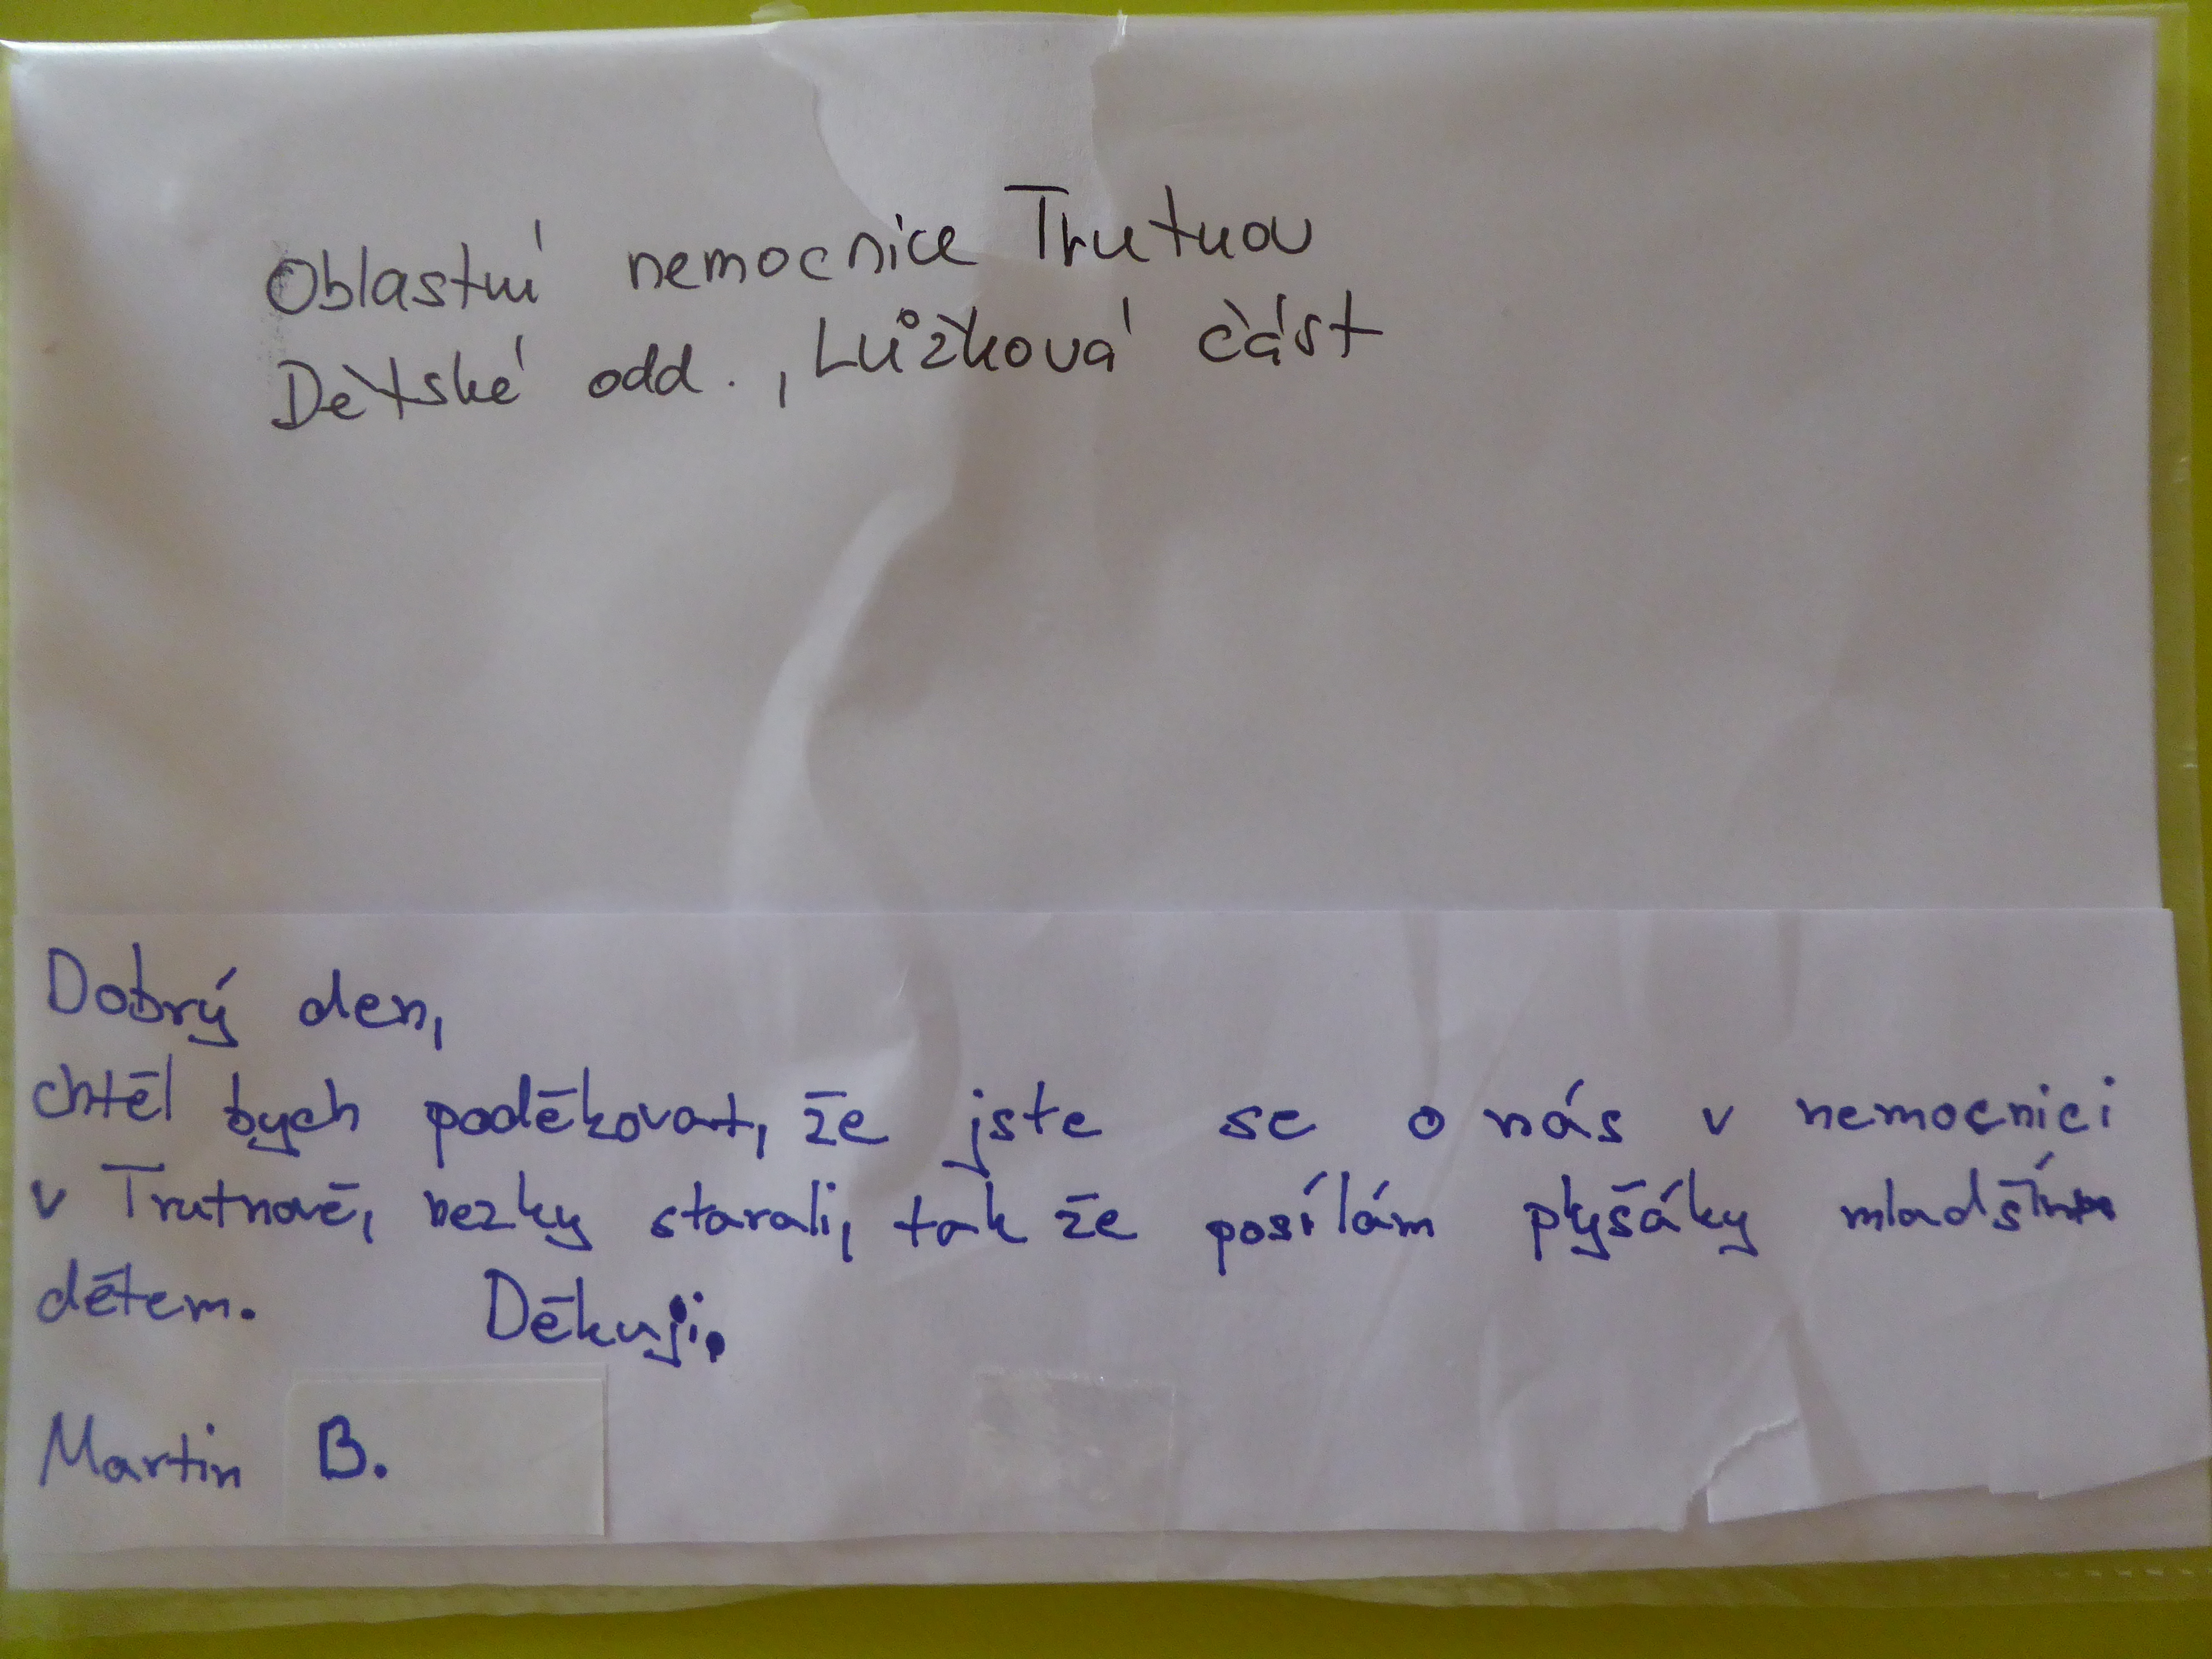 Oblastní nemocnice Trutnov
Dětské odd., Lůžková část
Dobrý den,
chtěl bych poděkovat, že jste se o nás v nemocnici
v Trutnově, hezky starali, tak že posílám plyšáky mladším
dětem. Děkuji.
Martin B.